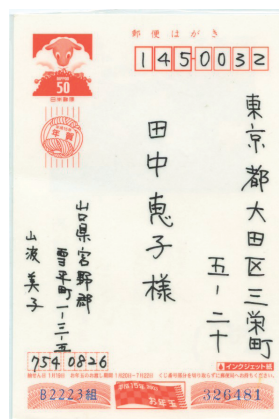 郵便はがき
145-0032
NIPPON
50
日本郵便
年賀
東京都大田区三栄町
五-二十
田中恵子様
山口県宮野郡
雪平町一-三-五
山波美子
754 0826
インクジェット紙
B2223組
平成15年
お年玉
326481